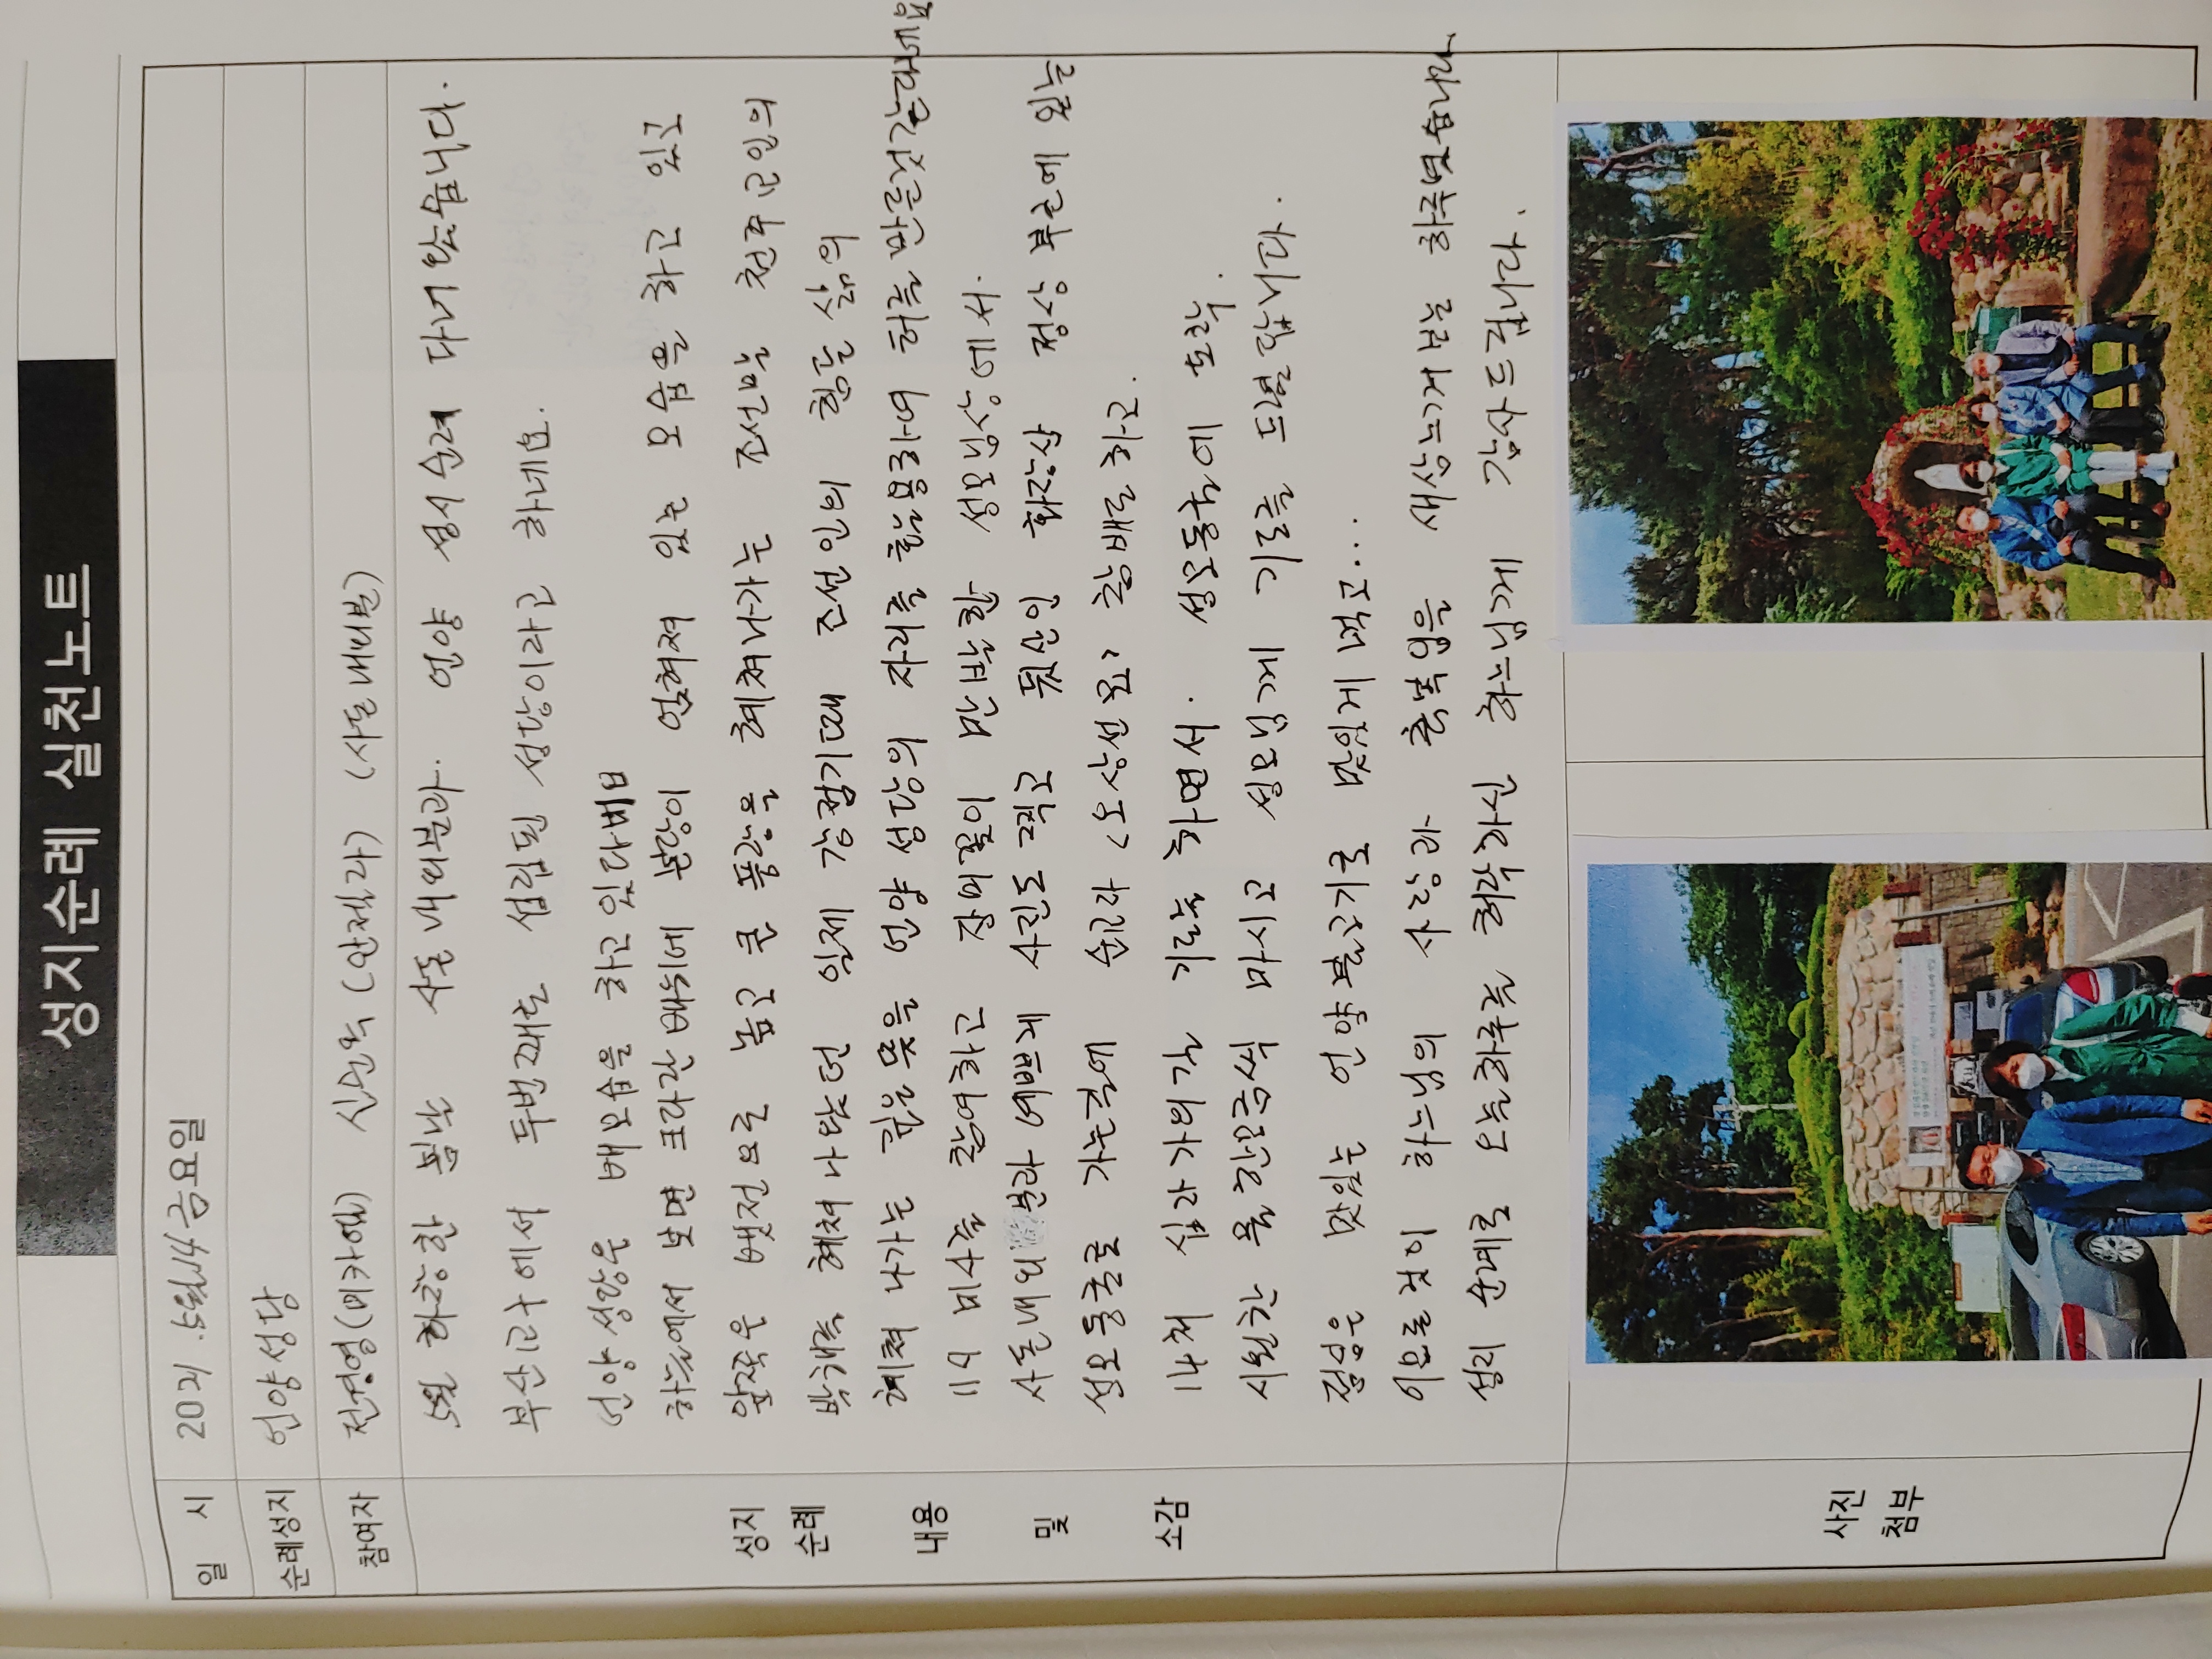 성지순례 실천노트
일 시
2021 .5월.14 금요일
순례성지
언양성당
참여자
전경영(미카엘) 신순옥 (안젤라) (사돈내외분)
5월 화창한 봄날 사돈내외분과. 언양 성지순례 다녀 왔습니다.
부산교구에서 두번째로 설립된 성당이라고 하네요.
언양성당은 배모습을 하고있다
하늘에서 보면 커다란 배위에 본당이 얹혀져 있는 모습을 하고 있고
앞쪽은 뱃전으로 높고 큰 풍랑을 헤쳐나가는 조선말 천주교인의
박해를 헤쳐 나왔던 일제 강점기때 조선인의 힘든 삶의
헤쳐 나가는 깊은뜻을 언양성당의 자리를 활용하여 만든것같다네요
11시 미사를 참여하고 장미꽃이 만발한 성모님상에서.
사돈내외 분과 예쁘게 사진도 찍고 뒷산인 화장산 정상 부근에 있는
성모동굴로 가는길에 순교자 <오상선묘> 참배도 하고.
14처 십자가의길 기도를 하면서. 성모동굴에 도착.
시원한 물한모금씩 마시고 성모님께 기도를 드렸답니다.
점심은 맛있는 언양불고기로 맛있게 먹고...
이모든것이 하느님의 사랑과 축복임을 새삼느껴보는 하루였습니다.
성지 순례로 오늘하루를 허락하신 하느님께 감사드립니다.
성지
순례
내용
및
소감
사진
첨부